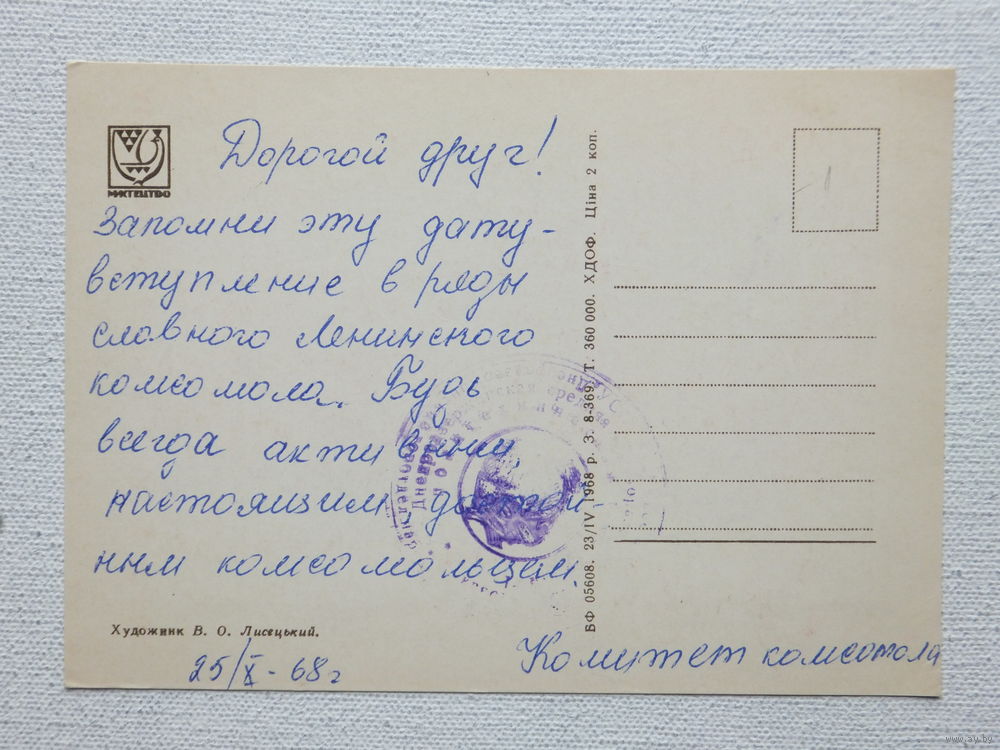 Дорогой друг!
МИСТЕЦТВО
Запомни эту дату -
вступление в ряды
славного Ленинского
комсомола. Будь
всегда активным,
настоящим, достой-
ным комсомольцем.
Художник В. О. Лисецький.
25/X - 68 г
Комитет комсомола
БФ 05608. 23/IV 1968 р. З. 8-369. Т. 360 000. ХДОФ. Ціна 2 коп.
1
средняя
www.ay.by